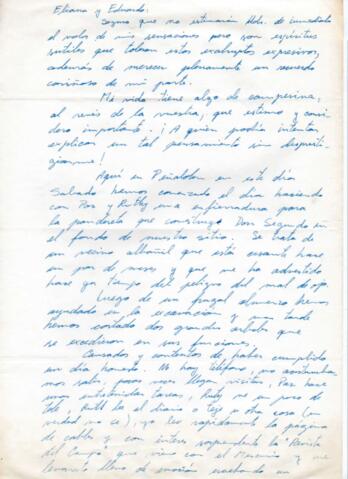 Eliana y Eduardo:
Seguro que no estimarán Uds. de inmediato
el valor de mis sensaciones pero son espíritus
sutiles que toleran estos exabruptos expresivos,
además de merecer plenamente un recuerdo
cariñoso de mi parte.
Mi vida tiene algo de campesina,
al revés de la vuestra, que estimo y consi-
dero importante. ¡A quién podía intentar
explicar un tal pensamiento sin despresti-
giarme!
Aquí en Peñalolén en este día
Sábado hemos comenzado el día haciendo
con Paz y Ruthy una enfierradura para
la pandereta que construye Don Segundo en
el fondo de nuestro sitio. Se trata de
un vecino albañil que está cesante hace
un par de meses y que me ha advertido
hace ya tiempo del peligro del mal de ojo.
Luego de un frugal almuerzo hemos
ayudado en la excavación y más tarde
hemos cortado dos grandes árboles que
se excedieron en sus funciones.
Cansados y contentos de haber cumplido
un día honrado. No hay teléfono, no acostumbra-
mos salir, pocas veces llegan visitas, Paz hace
unas entretenidas tareas, Ruthy ve un poco de
tele, Ruth lee el diario o teje u otra cosa (en
verdad no sé), yo leo rápidamente la página
de cables y con interés sorprendente la "Revista
del Campo" que viene con el Mercurio y me
levanto lleno de emoción escuchando un